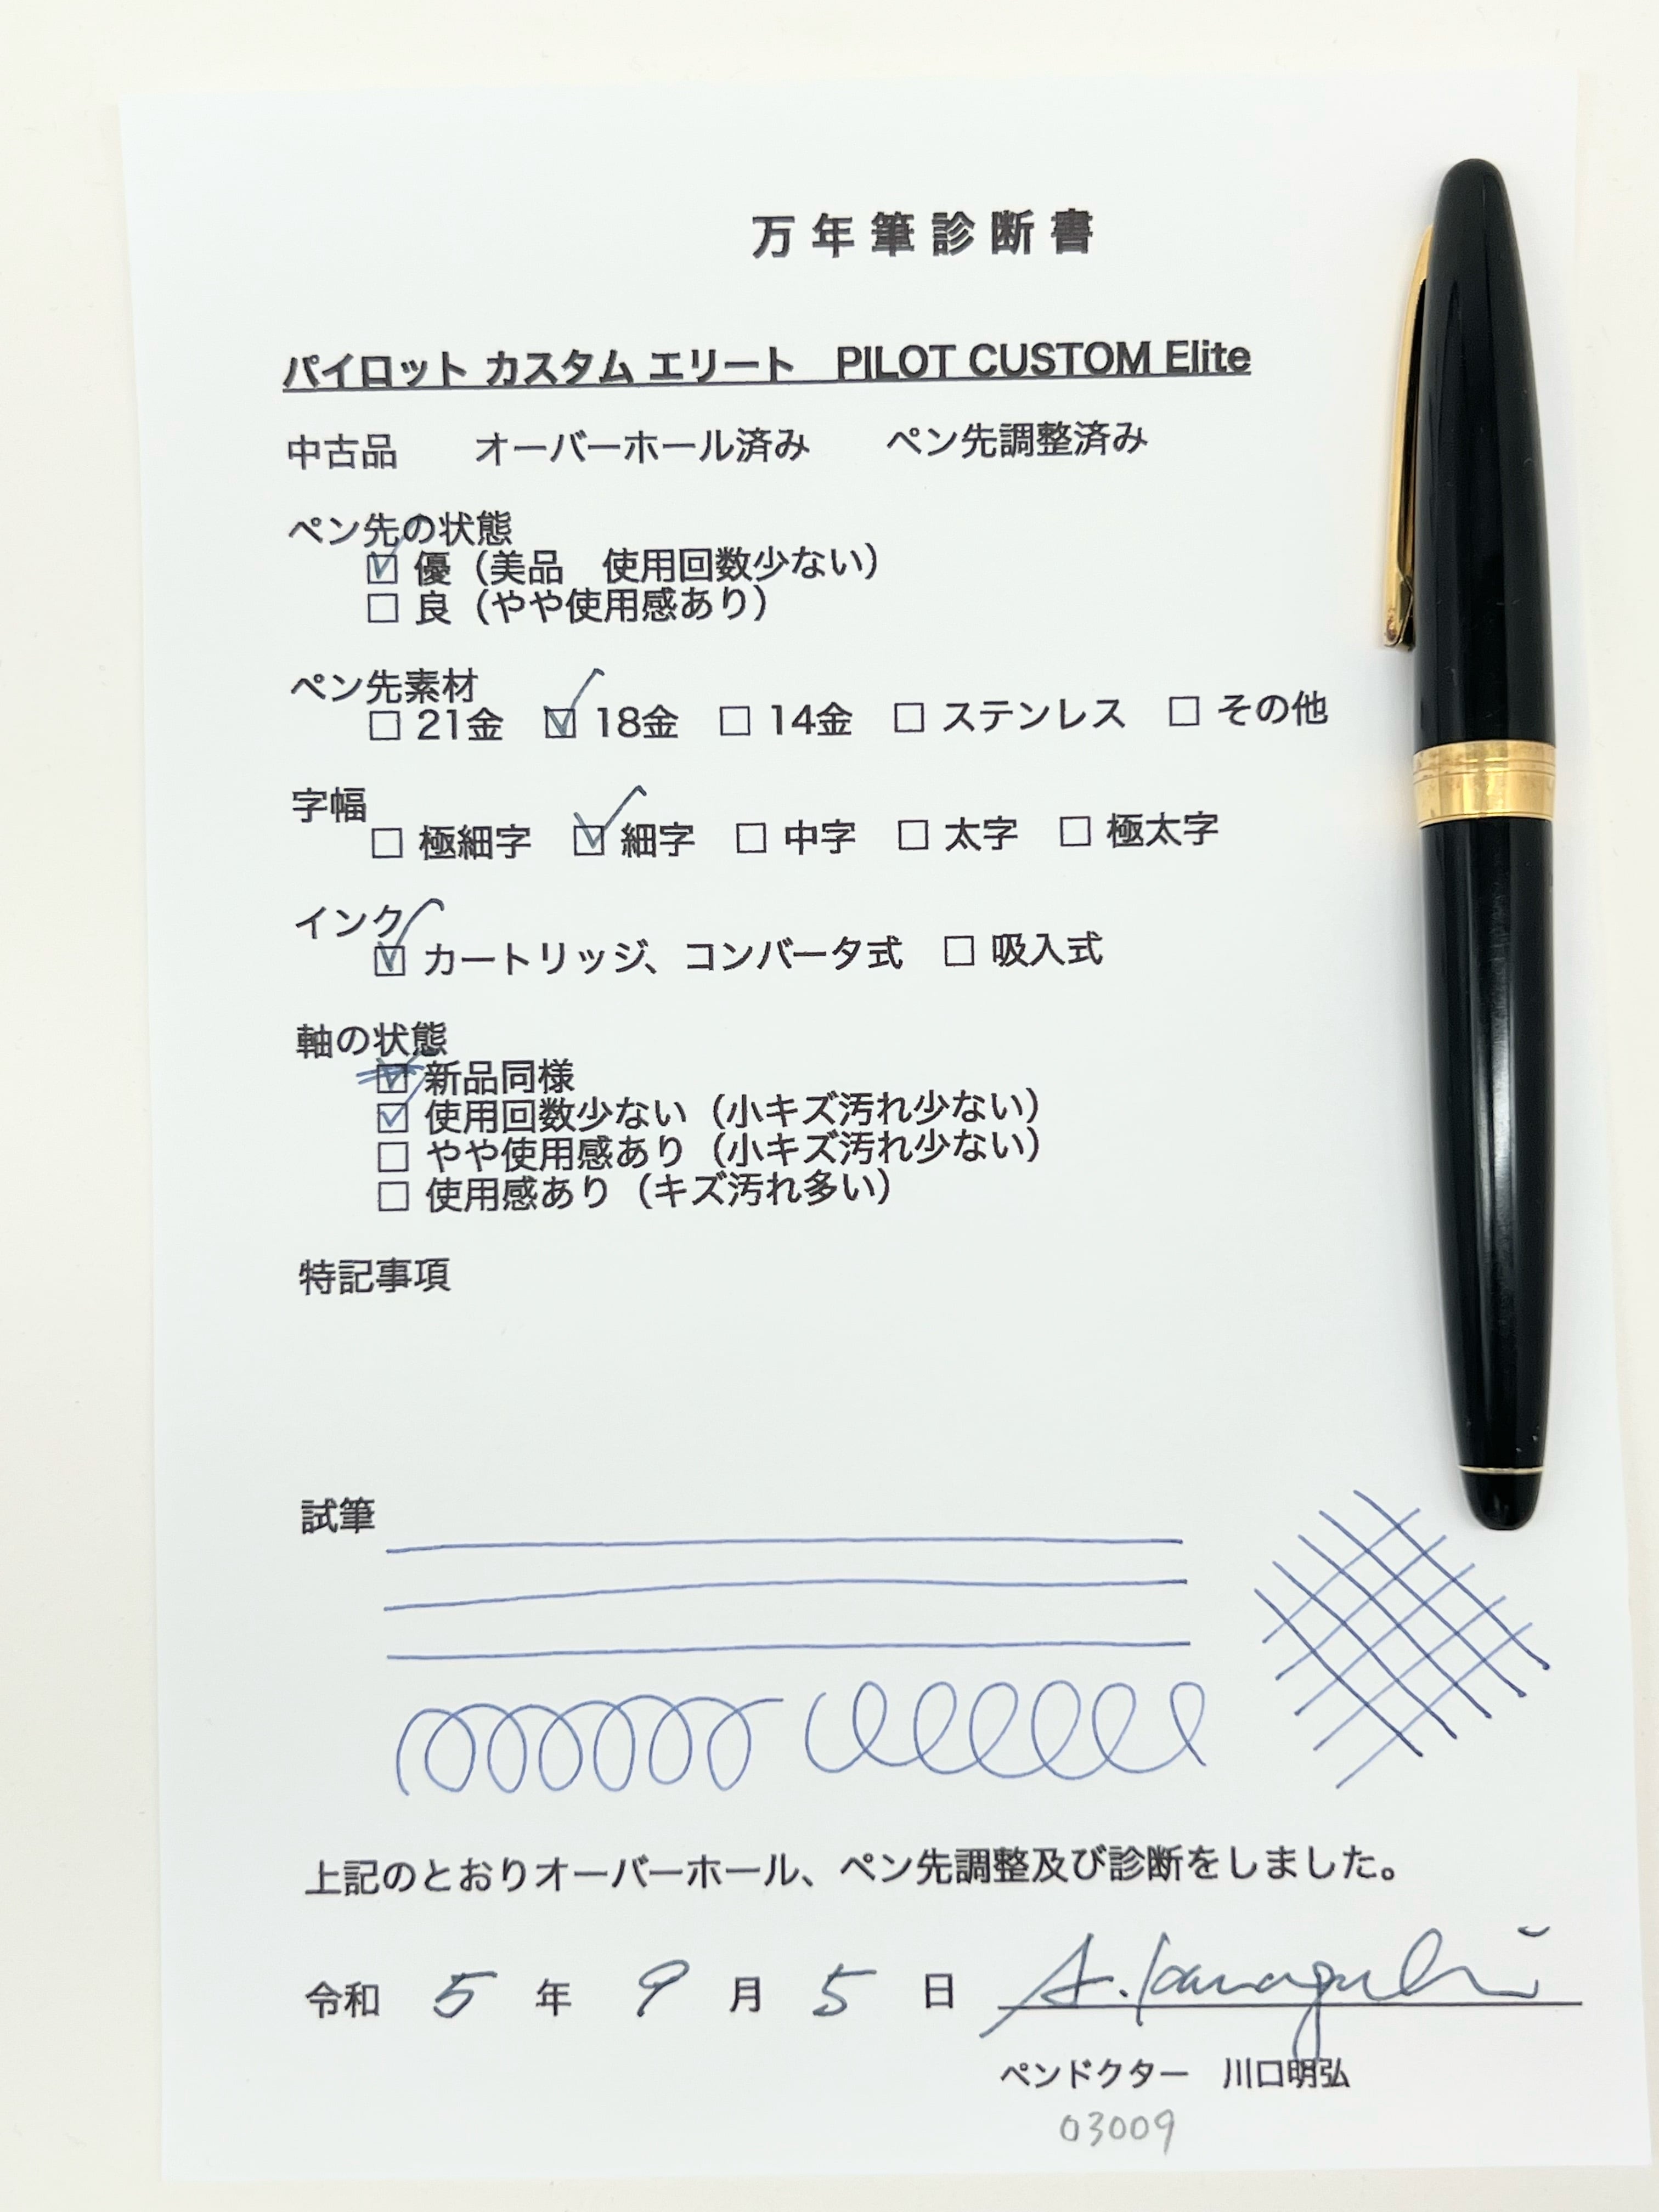 万年筆診断書
パイロット カスタム エリート　PILOT CUSTOM Elite
中古品　　オーバーホール済み　　ペン先調整済み
ペン先の状態
☑ 優（美品　使用回数少ない）
☐ 良（やや使用感あり）
ペン先素材
☐ 21金　☑ 18金　☐ 14金　☐ ステンレス　☐ その他
字幅
☐ 極細字　☑ 細字　☐ 中字　☐ 太字　☐ 極太字
インク
☑ カートリッジ、コンバータ式　☐ 吸入式
軸の状態
☑ 新品同様
☑ 使用回数少ない（小キズ汚れ少ない）
☐ やや使用感あり（小キズ汚れ少ない）
☐ 使用感あり（キズ汚れ多い）
特記事項
試筆
上記のとおりオーバーホール、ペン先調整及び診断をしました。
令和 5 年 9 月 5 日 A. Kawaguchi
ペンドクター　川口明弘
03009